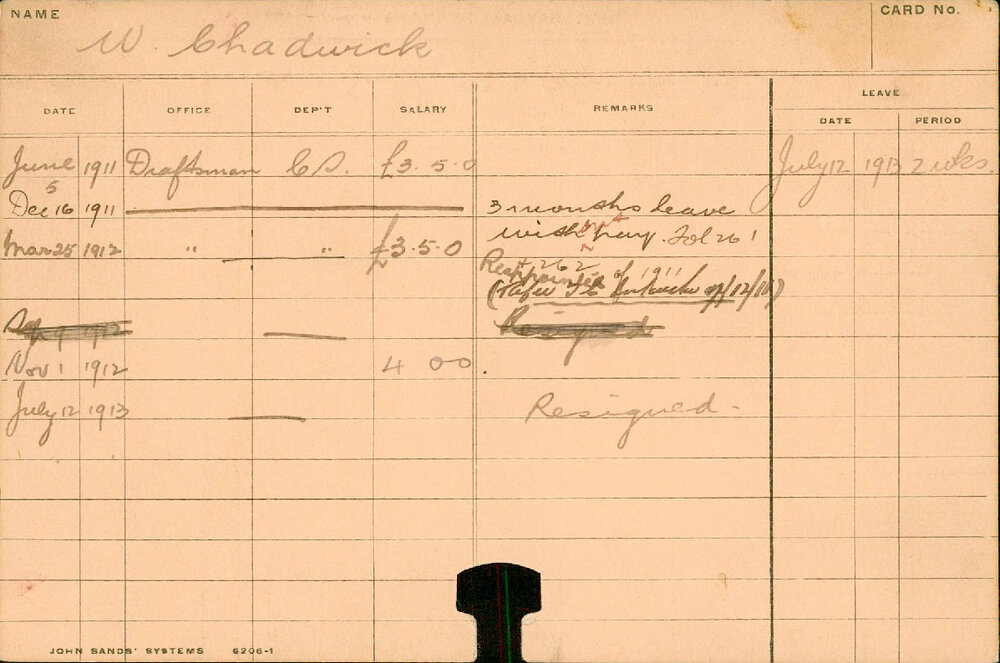 NAME
W. Chadwick
CARD No.
DATE OFFICE DEP'T SALARY REMARKS LEAVE
DATE PERIOD
June 1911 Draftsman £3.5.0 July 12 1913 2 wks.
5
Dec 16 1911 3 months leave
without pay. Fol 261
Mar 25 1912 " " £3.5.0
+ 262 of 1911
Reappointed
Resigned
Nov 1 1912 4 00
July 12 1913 Resigned.
JOHN SANDS' SYSTEMS 6206-1